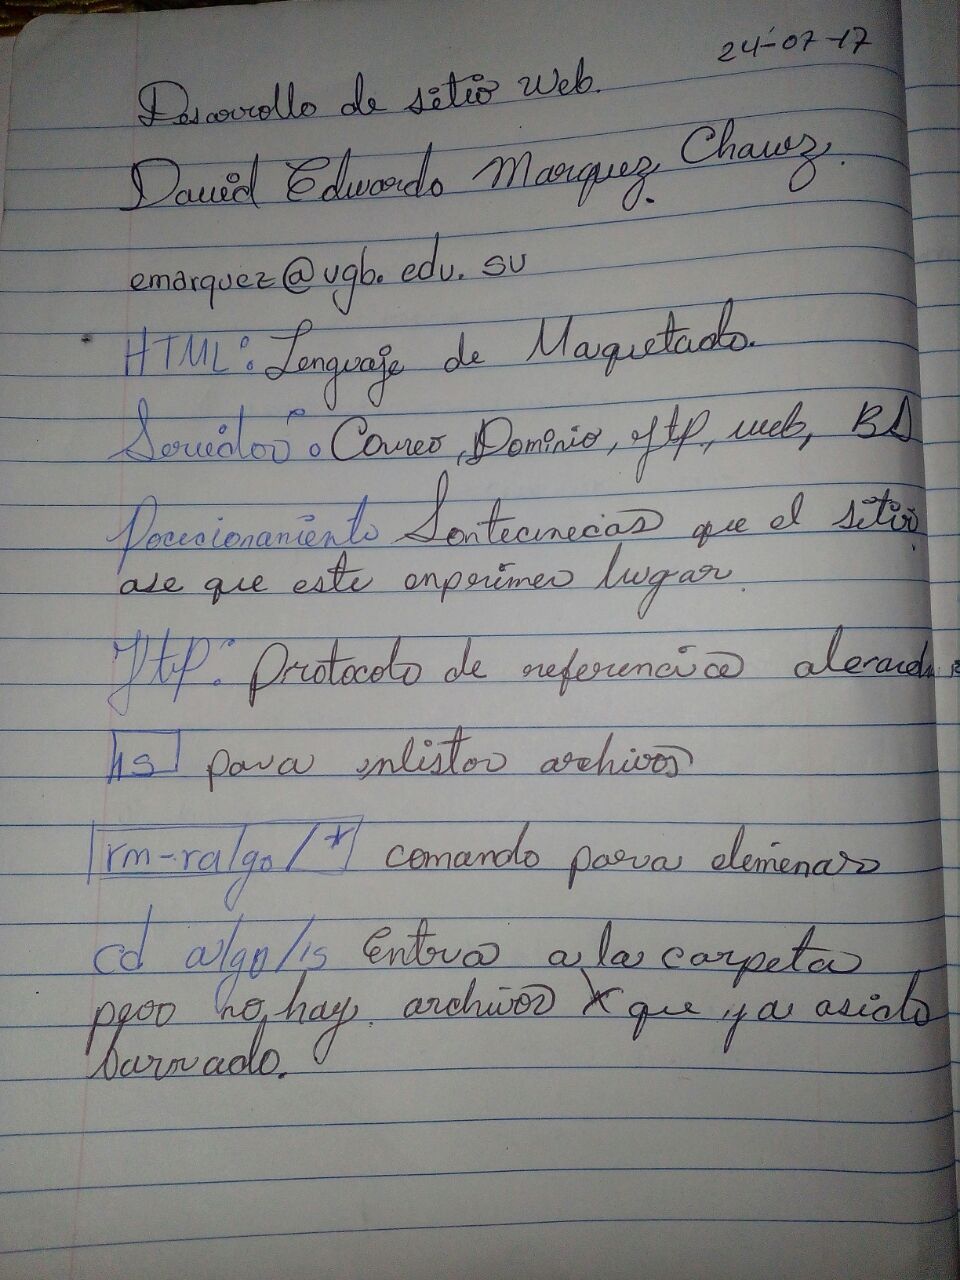 24-07-17
Desarrollo de sitio Web.
David Eduardo Marquez Chavez.
emarquez@ugb.edu.sv
HTML: Lenguaje de Maquetado.
Servidor: Correo, Dominio, ftp, web, BD
Pocicionamiento Son tecnicas que el sitio
ase que este en primer lugar.
ftp: Protocolo de referencia de
ls para enlistar archivos
rm-ralgo/* comando para eliminar
cd algo/ls Entra a la carpeta
pero no hay archivos X que ya asido
borrado.